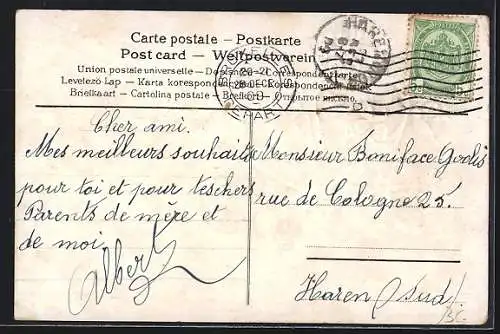 Carte postale – Postkarte
Post card – Weltpostverein
Union postale universelle – Correspondentkarte
Levelező-Lap – Karta korespondencyjna – Korespondenční lístek
Briefkaart – Cartolina postale – Brefkort – Открытое письмо.
BRUXELLES
20-21
DEC
DEPART
HAREN
Cher ami.
Mes meilleurs souhaits
pour toi et pour tes chers
Parents de mère et
de moi
Albert
Monsieur Boniface
rue de Cologne 25.
Haren (Sud)